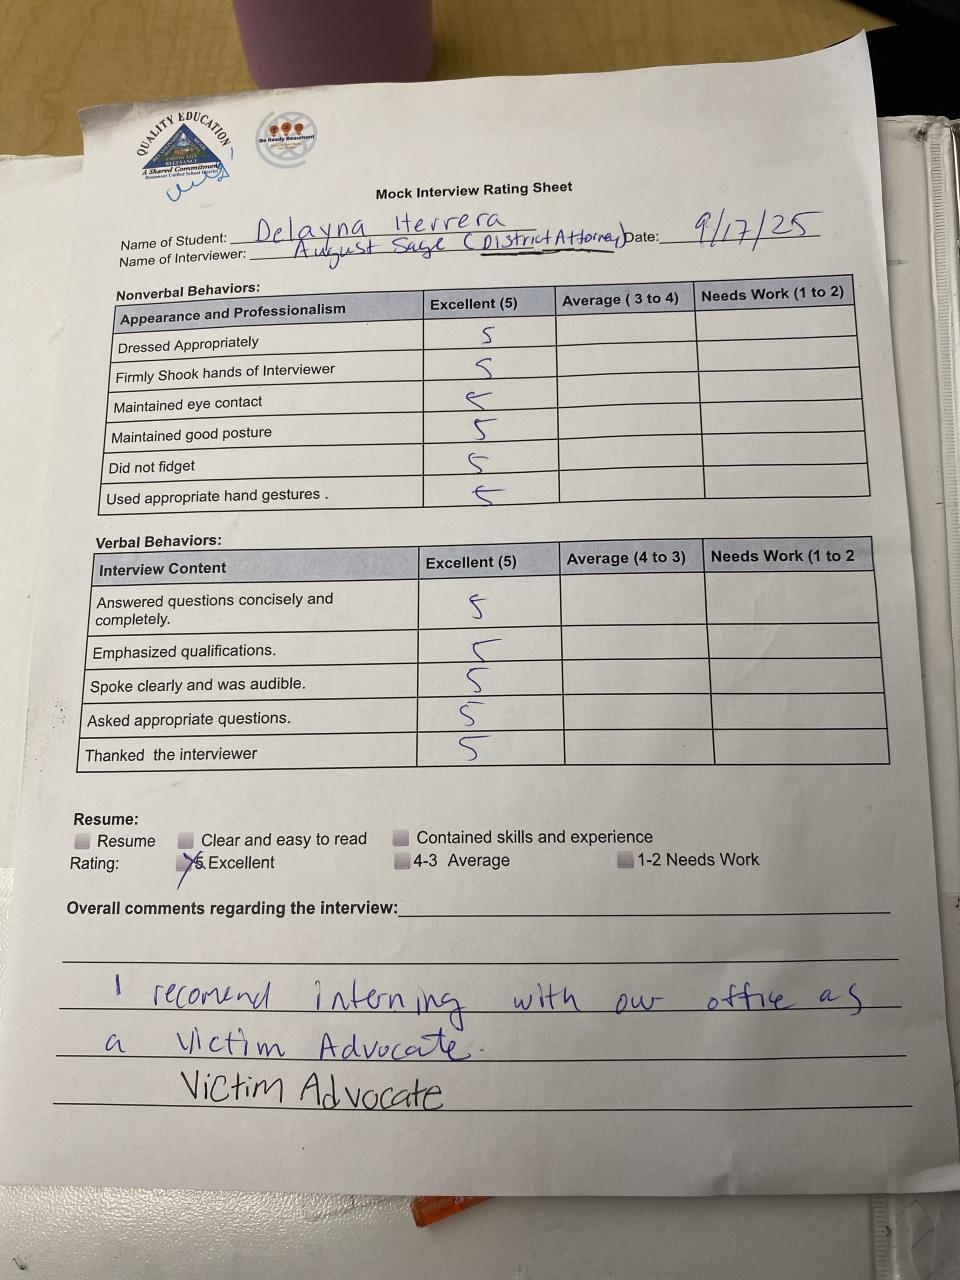 QUALITY EDUCATION
A Shared Commitment
Beaumont Unified School District
Be Ready Beaumont
Mock Interview Rating Sheet
Name of Student: Delayna Herrera
Name of Interviewer: August Sage (District Attorney) Date: 9/17/25
Nonverbal Behaviors:
Appearance and Professionalism Excellent (5) Average ( 3 to 4) Needs Work (1 to 2)
Dressed Appropriately 5
Firmly Shook hands of Interviewer 5
Maintained eye contact 5
Maintained good posture 5
Did not fidget 5
Used appropriate hand gestures . 5
Verbal Behaviors:
Interview Content Excellent (5) Average (4 to 3) Needs Work (1 to 2
Answered questions concisely and
completely. 5
Emphasized qualifications. 5
Spoke clearly and was audible. 5
Asked appropriate questions. 5
Thanked the interviewer 5
Resume:
Resume Clear and easy to read Contained skills and experience
Rating: 5 Excellent 4-3 Average 1-2 Needs Work
Overall comments regarding the interview:
I recomend interning with our office as
a Victim Advocate.
Victim Advocate